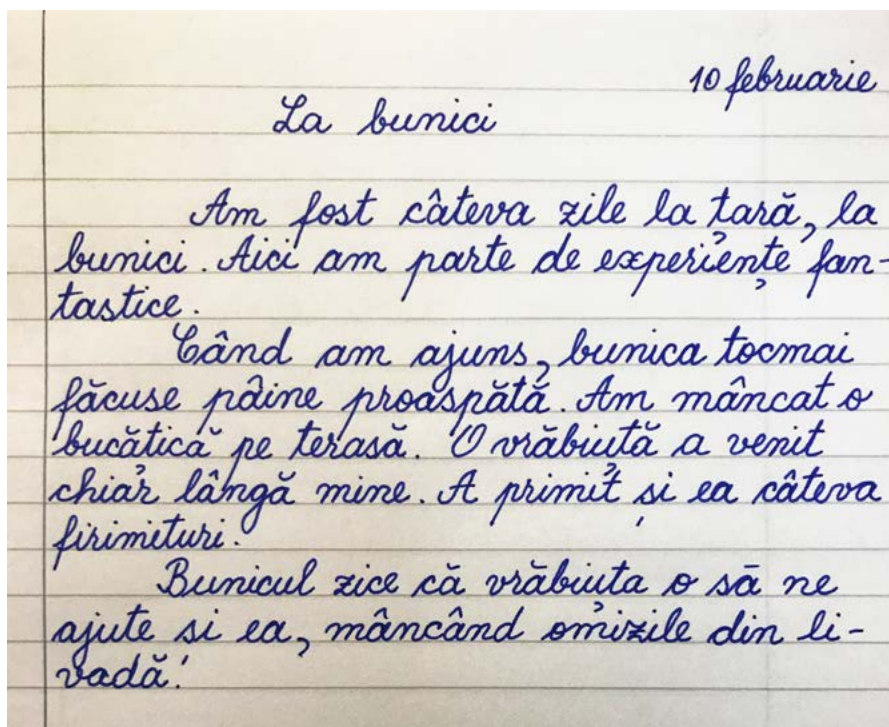 10 februarie
La bunici
Am fost câteva zile la țară, la
bunici. Aici am parte de experiențe fan-
tastice.
Când am ajuns, bunica tocmai
făcuse pâine proaspătă. Am mâncat o
bucățică pe terasă. O vrăbiuță a venit
chiar lângă mine. A primit și ea câteva
firimituri.
Bunicul zice că vrăbiuța o să ne
ajute și ea, mâncând omizile din li-
vadă!